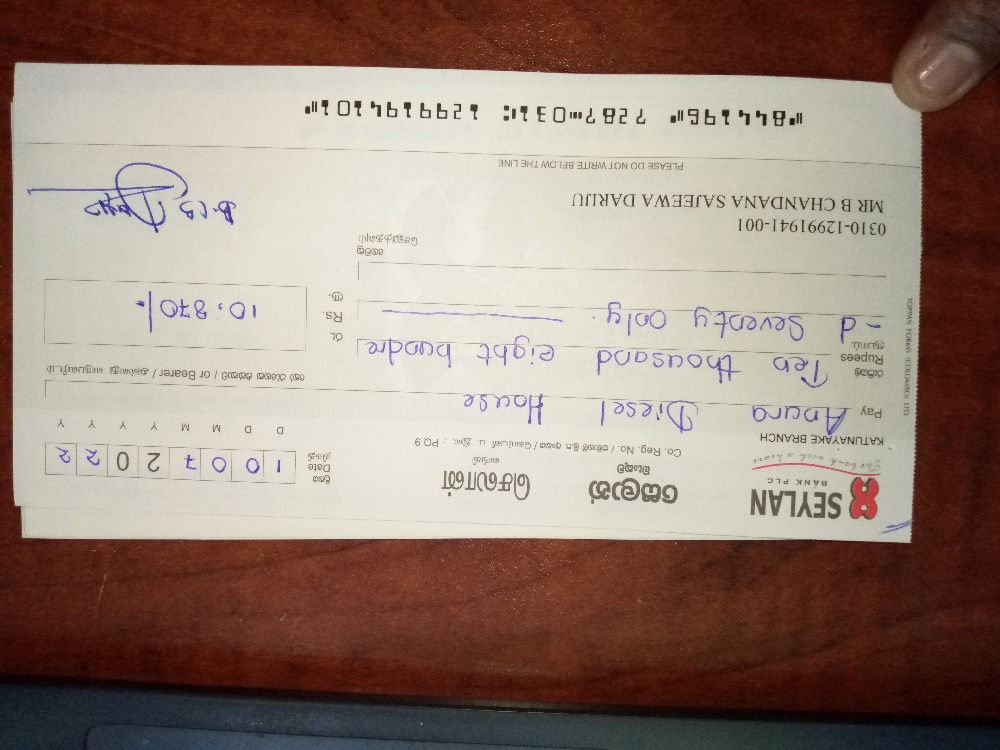 SEYLAN
BANK PLC
The bank with a heart
KATUNAYAKE BRANCH
සෙලාන්
බැංකුව
செலான்
வங்கி
Co. Reg. No. / : PQ 9
දිනය
Date
திகதி
1 0 0 7 2 0 2 2
D D M M Y Y Y Y
Pay Anura Diesel House
හෝ රැගෙන එන්නාට / or Bearer /
රුපියල්
Rupees
ரூபாய்
Ten thousand eight hundre
-d Seventy only.
රු.
Rs.
ரூ.
10,870/-
0310-12991941-001
MR B CHANDANA SAJEEWA DARIJU
PLEASE DO NOT WRITE BELOW THE LINE
⑈844196⑈ 7287⑉031⑆ 1299194101⑈